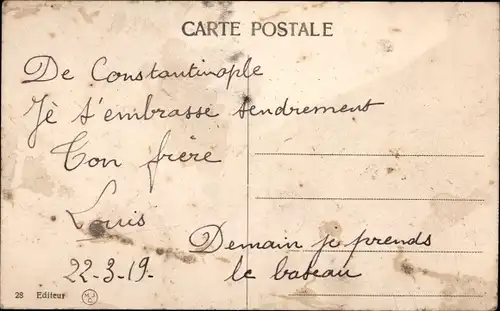 CARTE POSTALE
De Constantinople
Jè t'embrasse tendrement
Ton frère
Louis
22-3-19.
Demain je prends
le bateau
28 Editeur